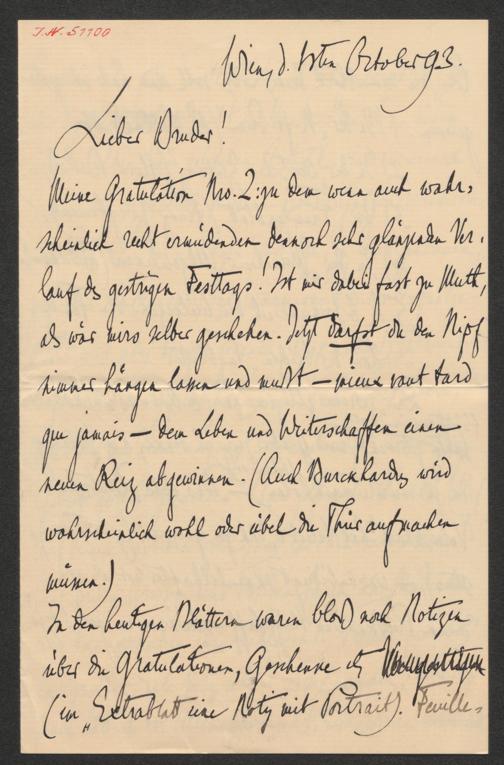 J.N. 51700
Wien, d. 1sten October 93.
Lieber Bruder!
Meine Gratulation Nro. 2: zu dem wenn auch wahr-
scheinlich recht ermüdenden dennoch sehr glänzenden Ver-
lauf des gestrigen Festtags! Ist mir dabei fast zu Muth,
als wär mirs selber geschehen. Jetzt darfst du den Kopf
nimmer hängen lassen und mußt – mieux vaut tard
que jamais – dem Leben und Weiterschaffen einen
neuen Reiz abgewinnen. (Auch Burckhardt wird
wahrscheinlich wohl oder übel die Thür aufmachen
müssen.)
In den heutigen Blättern waren bloß noch Notizen
über die Gratulationen, Geschenke etz
(im „Extrablatt eine Notiz mit Portrait). Feuille-